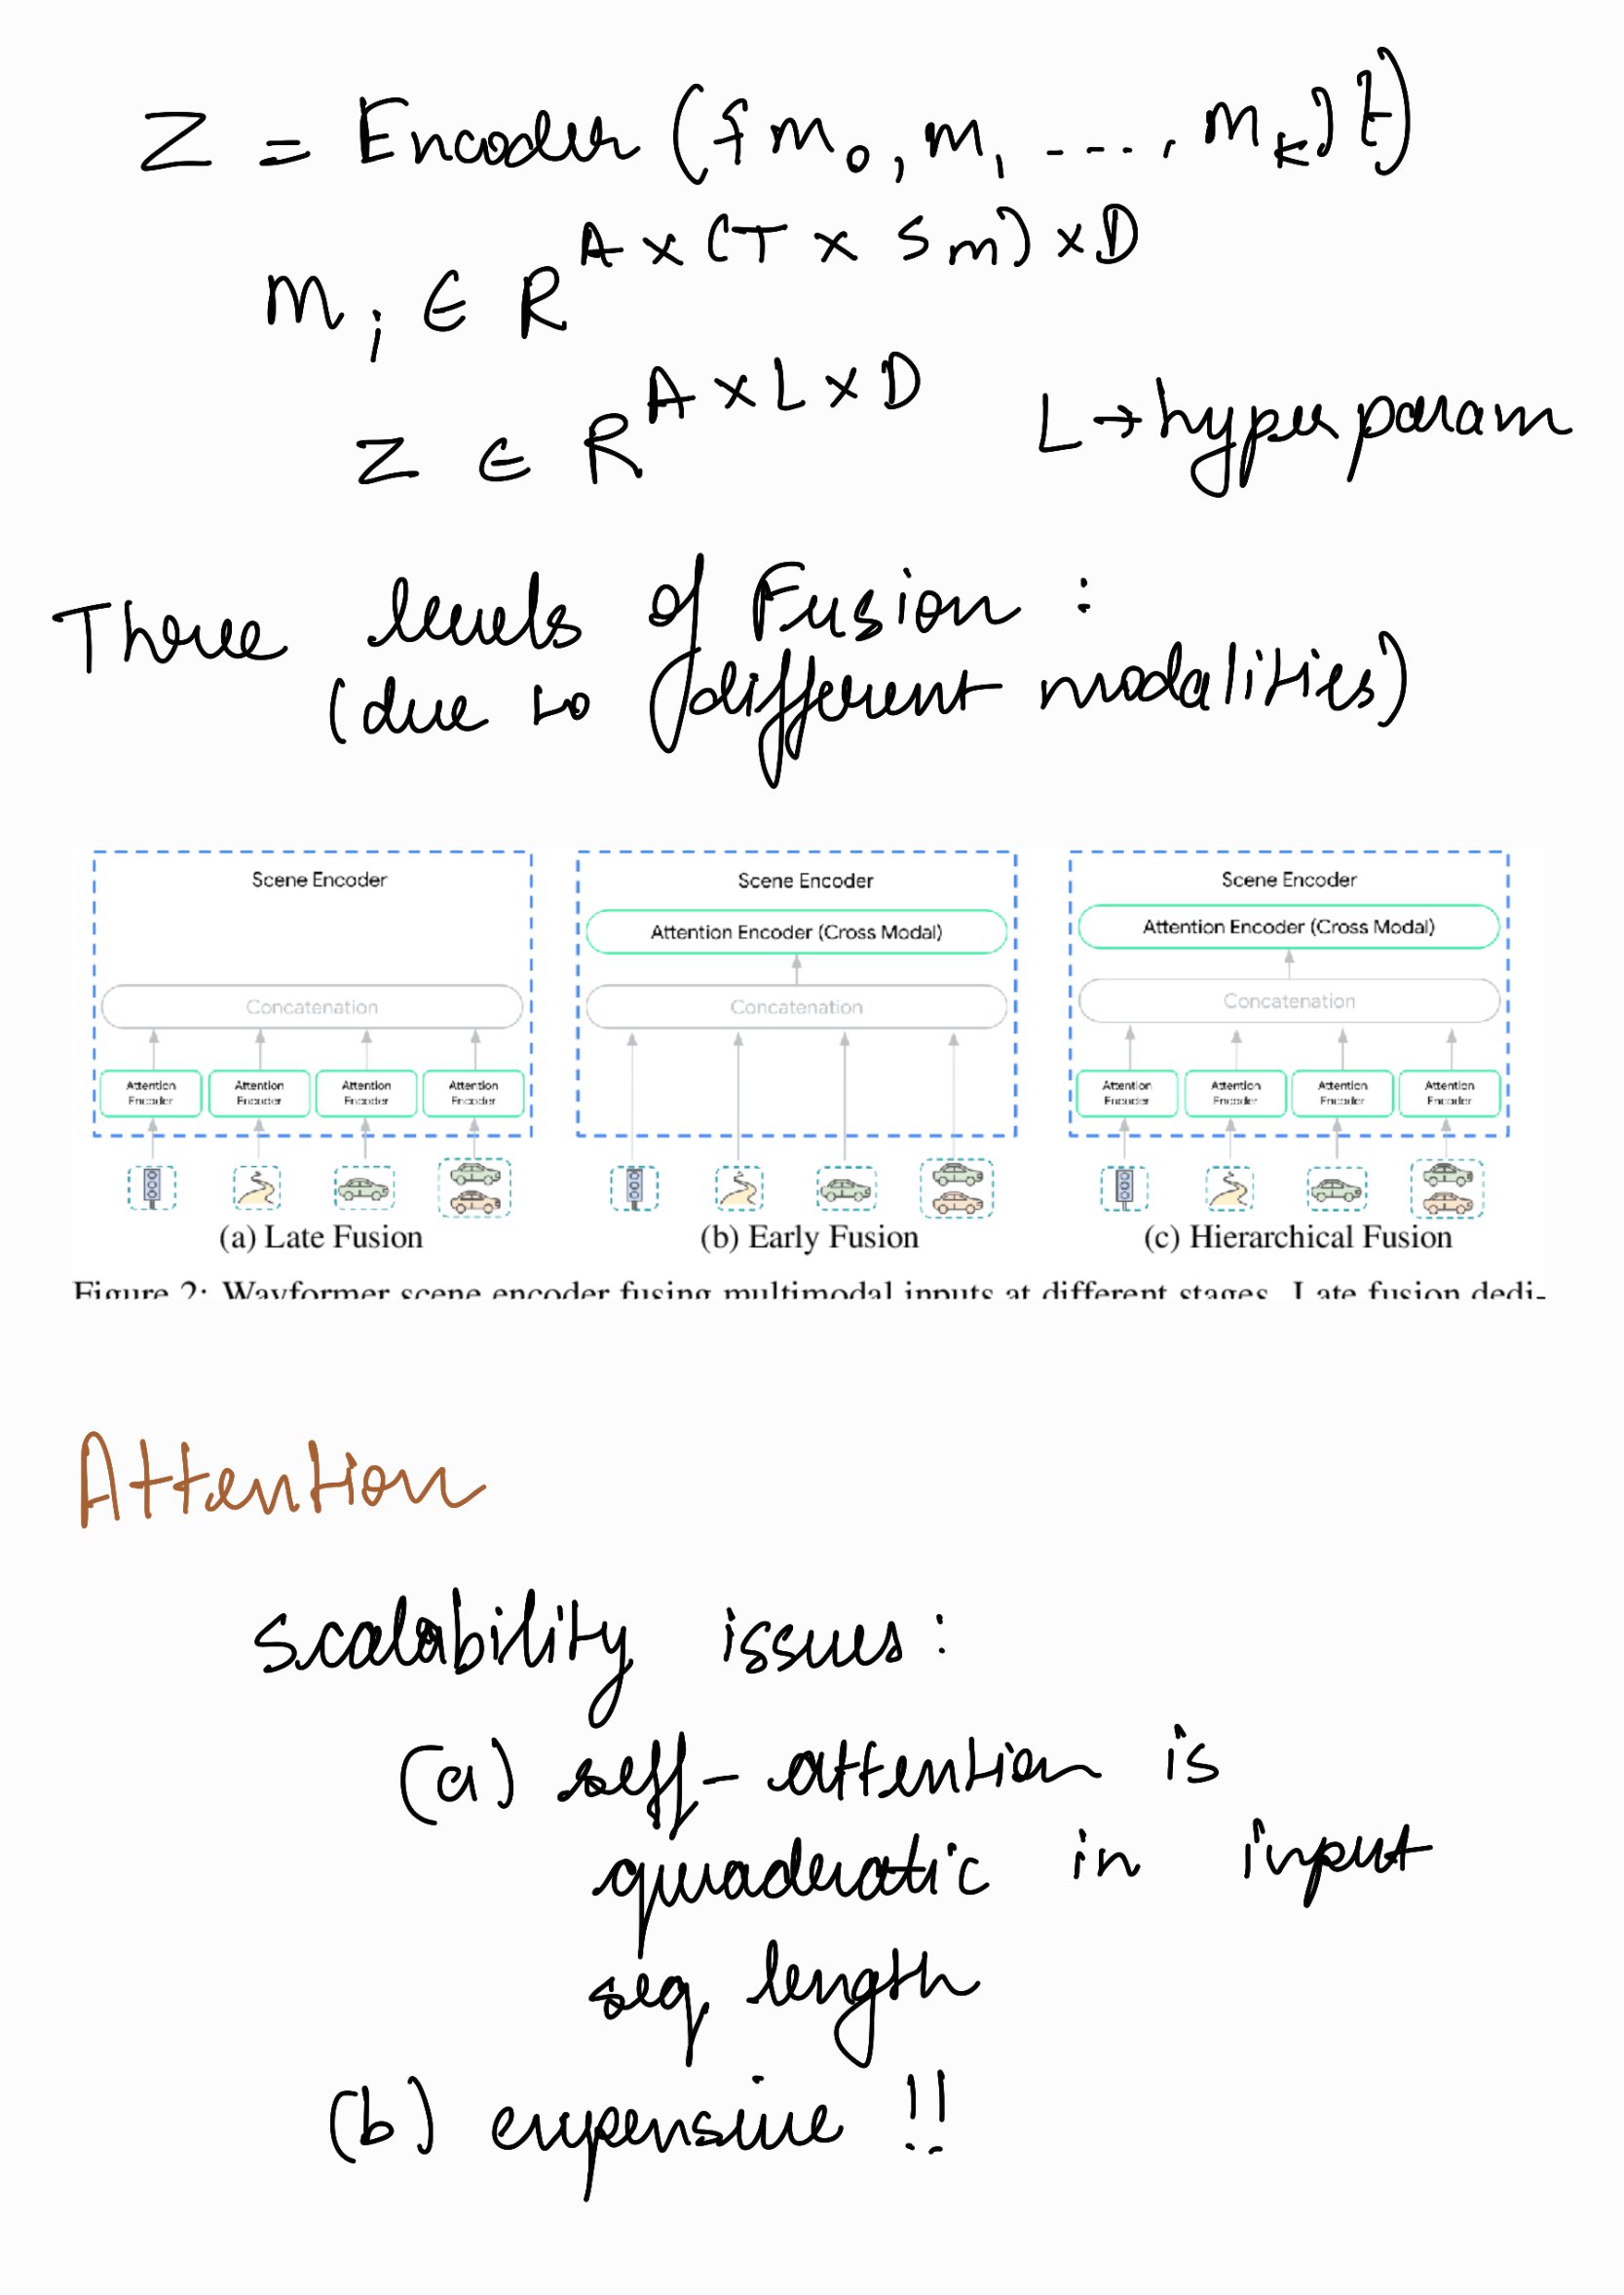 Z = Encoder ({m₀, m₁ ---, mₖ) })
mᵢ ∈ R^A×(T × Sm)×D
Z ∈ R^A×L×D L→hyperparam
Three levels of Fusion :
(due to different modalities)
Scene Encoder
Concatenation
Attention Encoder Attention Encoder Attention Encoder Attention Encoder
(a) Late Fusion
Scene Encoder
Attention Encoder (Cross Modal)
Concatenation
(b) Early Fusion
Scene Encoder
Attention Encoder (Cross Modal)
Concatenation
Attention Encoder Attention Encoder Attention Encoder Attention Encoder
(c) Hierarchical Fusion
Figure 2: Wayformer scene encoder fusing multimodal inputs at different stages. Late fusion dedi-
Attention
scalability issues :
(a) self-attention is
quadratic in input
seq length
(b) expensive !!